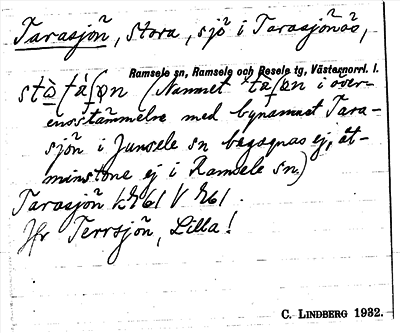 Tarasjön, stora, sjö i Tarasjönäs,
Ramsele sn, Ramsele och Resele tg, Västernorrl. l.
(Namnet i över-
ensstämmelse med bynamnet Tara-
sjön i Junsele sn begagnas ej, åt-
minstone ej i Ramsele sn.)
Tarasjön
Jfr Terrsjön, Lilla!
C. LINDBERG 1932.